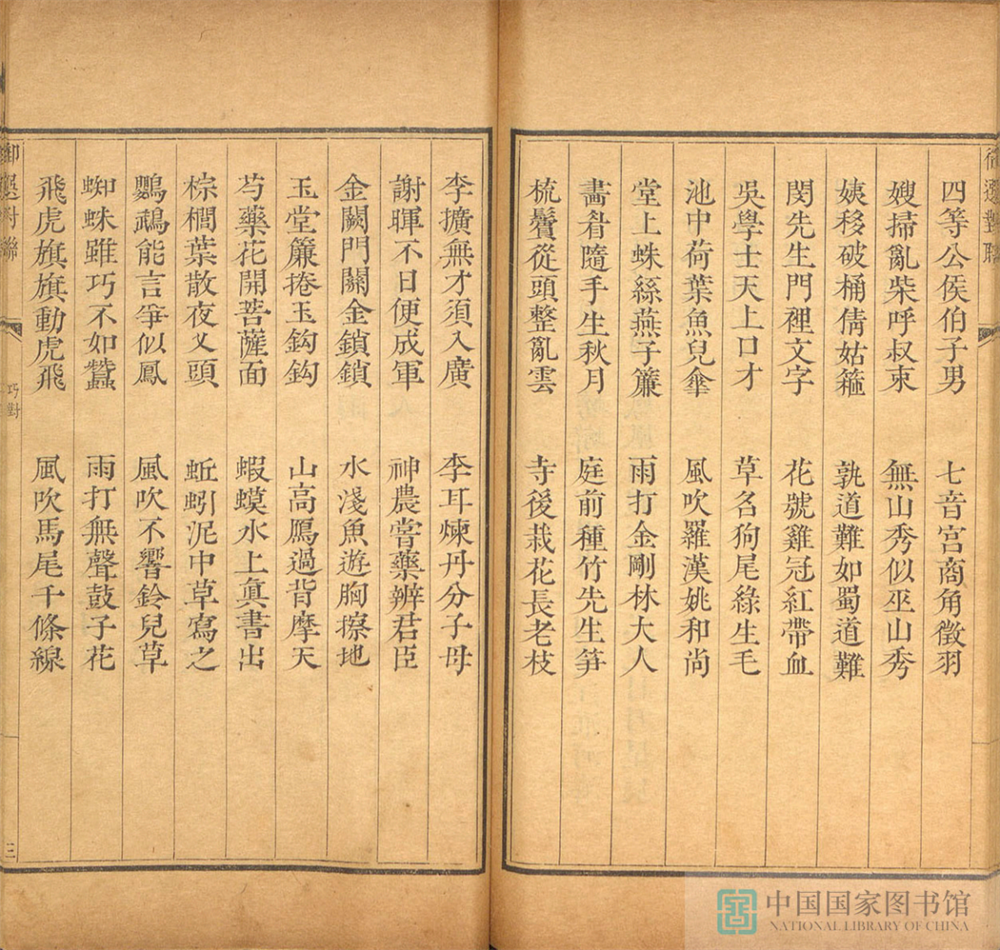 四等公侯伯子男　七音宮商角徵羽
嫂掃亂柴呼叔束　無山秀似巫山秀
姨移破桶倩姑箍　孰道難如蜀道難
閔先生門裡文字　花號雞冠紅帶血
吳學士天上口才　草名狗尾綠生毛
池中荷葉魚兒傘　風吹羅漢姚和尚
堂上蛛絲燕子簾　雨打金剛林大人
畵眉隨手生秋月　庭前種竹先生筍
梳鬢從頭整亂雲　寺後栽花長老枝
李擴無才須入廣　李耳煉丹分子母
謝暉不日便成軍　神農嘗藥辨君臣
金闕門關金鎖鎖　水淺魚遊胸擦地
玉堂簾捲玉鈎鈎　山高鴈過背摩天
芍藥花開菩薩面　蝦蟆水上眞書出
棕櫚葉散夜叉頭　蚯蚓泥中草寫之
鸚鵡能言爭似鳳　風吹不響鈴兒草
蜘蛛雖巧不如蠶　雨打無聲鼓子花
飛虎旗旗動虎飛　風吹馬尾千條線
御選對聯
巧對
中国国家图书馆
NATIONAL LIBRARY OF CHINA